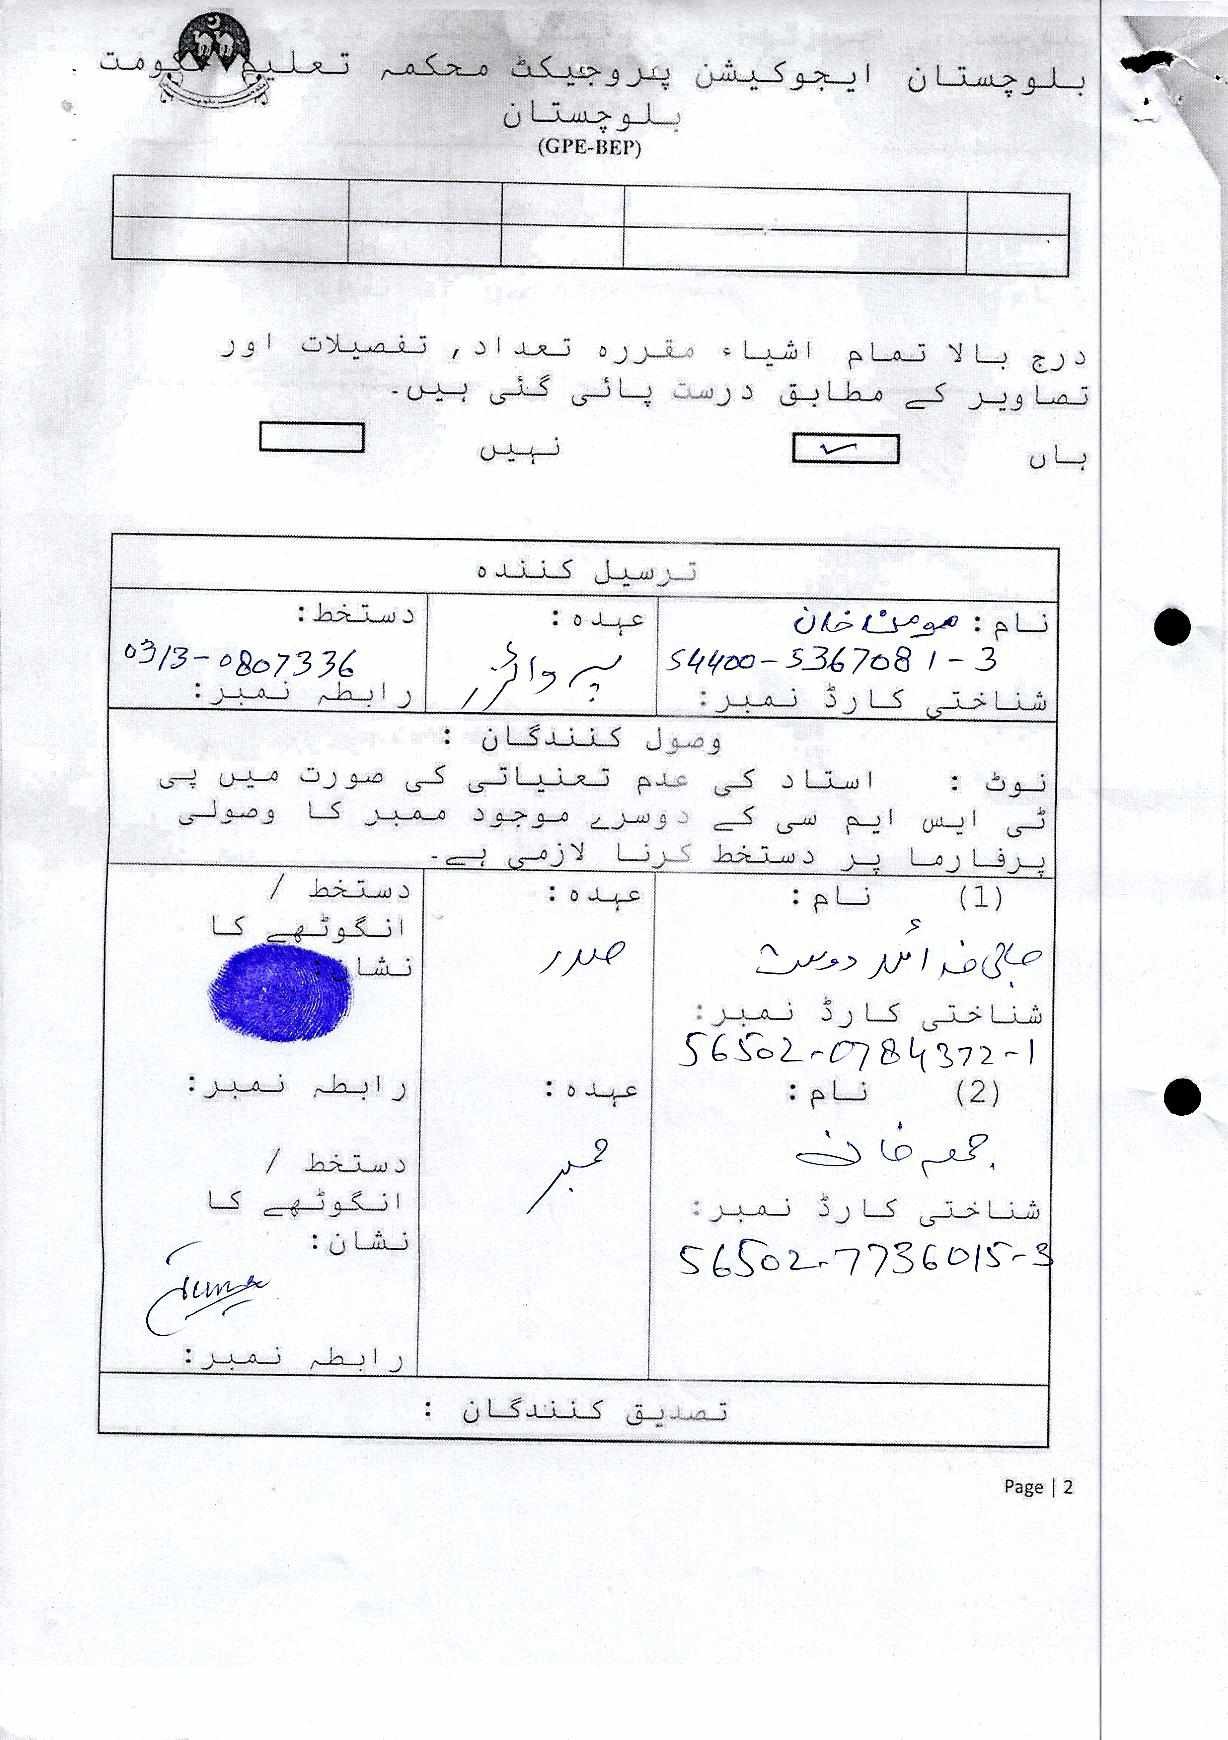 بلوچستان ایجوکیشن پروجیکٹ محکمہ تعلیم حکومت
بلوچستان
(GPE-BEP)
درج بالا تمام اشیاء مقررہ تعداد, تفصیلات اور
تصاویر کے مطابق درست پائی گئی ہیں۔
ہاں ✓ نہیں
ترسیل کنندہ
نام: مومن خان عہدہ: دستخط:
54400-5367081-3 سپروائزر 0313-0807336
شناختی کارڈ نمبر: رابطہ نمبر:
وصول کنندگان :
نوٹ : استاد کی عدم تعنیاتی کی صورت میں پی
ٹی ایس ایم سی کے دوسرے موجود ممبر کا وصولی
پرفارما پر دستخط کرنا لازمی ہے۔
(1) نام: عہدہ: دستخط /
انگوٹھے کا
حاجی دوست صدر نشان:
شناختی کارڈ نمبر:
56502-0784372-1
(2) نام: عہدہ: رابطہ نمبر:
جمعہ خان ممبر دستخط /
شناختی کارڈ نمبر: انگوٹھے کا
56502-7736015-3 نشان:
Juma
رابطہ نمبر:
تصدیق کنندگان :
Page | 2